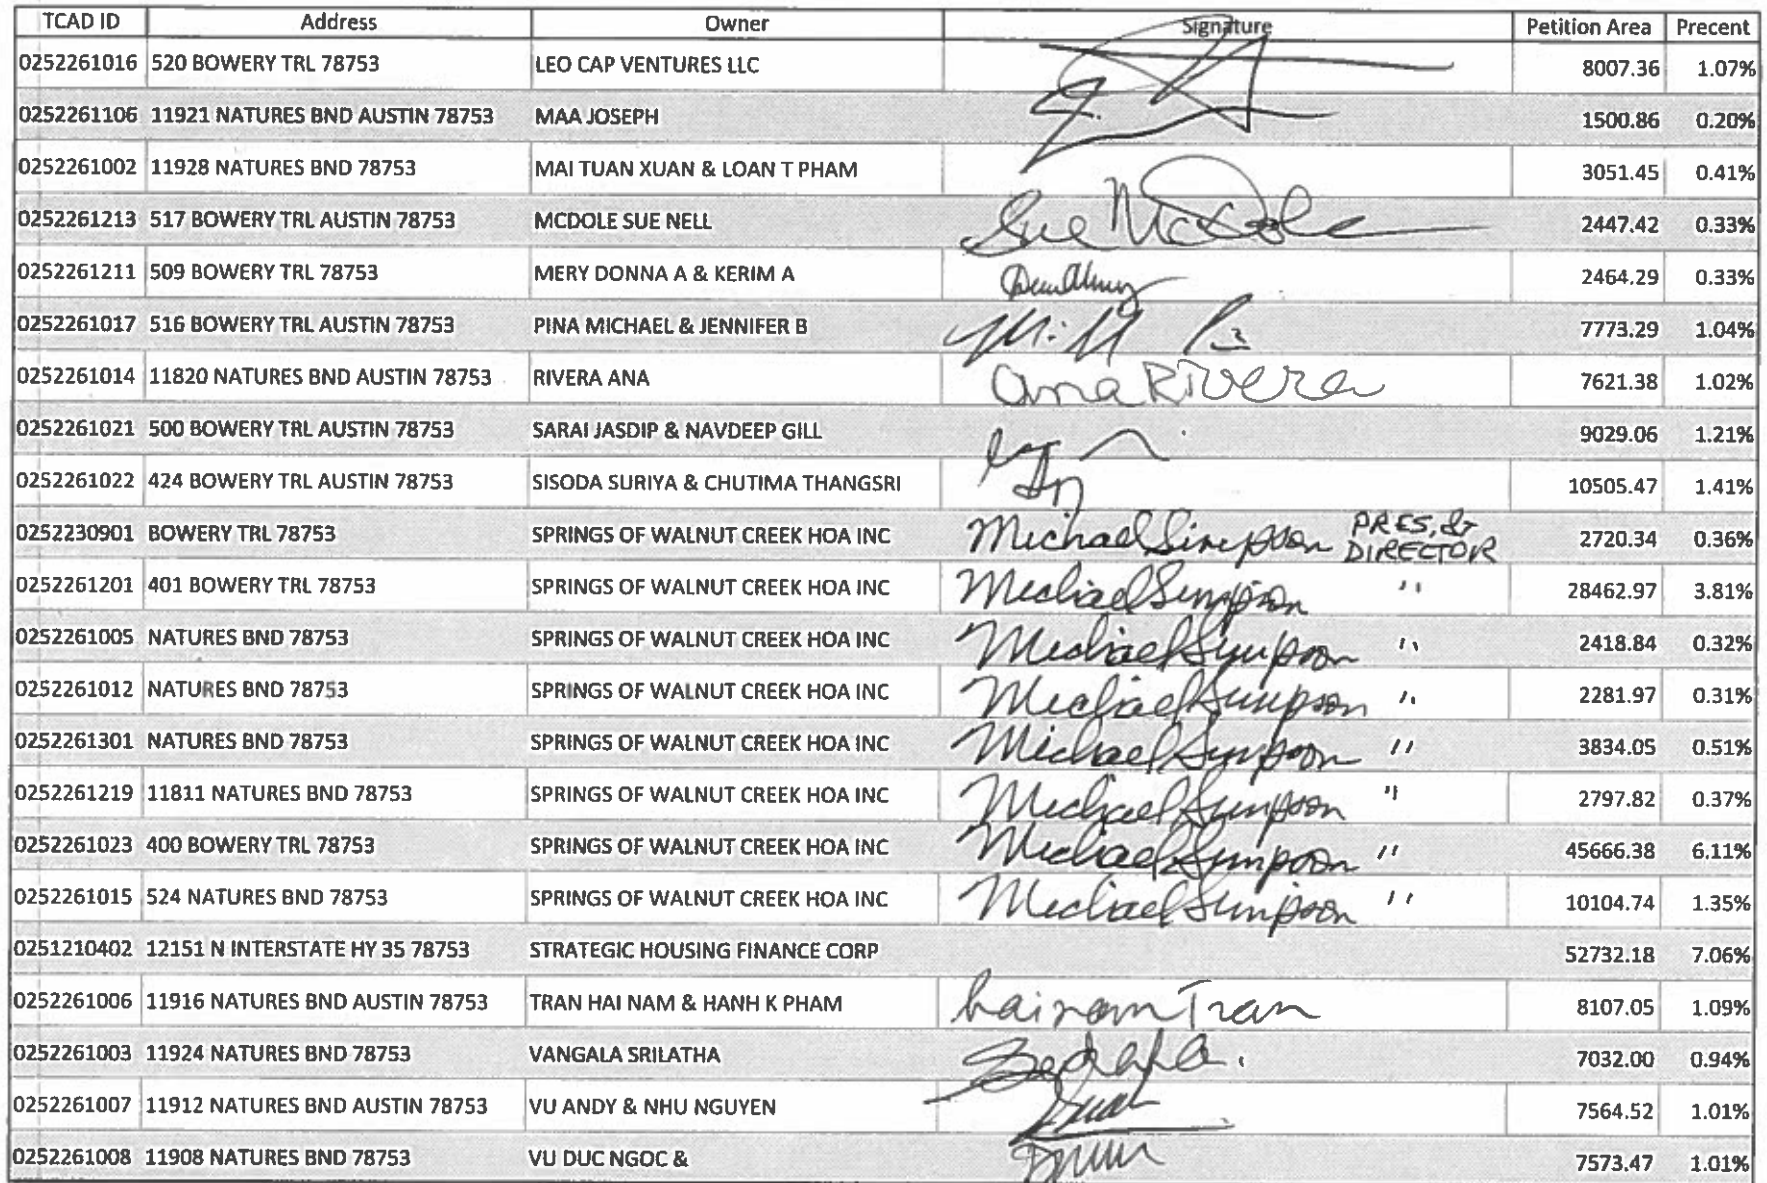 TCAD ID Address Owner Signature Petition Area Precent
0252261016 520 BOWERY TRL 78753 LEO CAP VENTURES LLC 8007.36 1.07%
0252261106 11921 NATURES BND AUSTIN 78753 MAA JOSEPH 1500.86 0.20%
0252261002 11928 NATURES BND 78753 MAI TUAN XUAN & LOAN T PHAM 3051.45 0.41%
0252261213 517 BOWERY TRL AUSTIN 78753 MCDOLE SUE NELL Sue McDole 2447.42 0.33%
0252261211 509 BOWERY TRL 78753 MERY DONNA A & KERIM A 2464.29 0.33%
0252261017 516 BOWERY TRL AUSTIN 78753 PINA MICHAEL & JENNIFER B 7773.29 1.04%
0252261014 11820 NATURES BND AUSTIN 78753 RIVERA ANA ana Rivera 7621.38 1.02%
0252261021 500 BOWERY TRL AUSTIN 78753 SARAI JASDIP & NAVDEEP GILL 9029.06 1.21%
0252261022 424 BOWERY TRL AUSTIN 78753 SISODA SURIYA & CHUTIMA THANGSRI 10505.47 1.41%
0252230901 BOWERY TRL 78753 SPRINGS OF WALNUT CREEK HOA INC Michael Simpson PRES. & DIRECTOR 2720.34 0.36%
0252261201 401 BOWERY TRL 78753 SPRINGS OF WALNUT CREEK HOA INC Michael Simpson " 28462.97 3.81%
0252261005 NATURES BND 78753 SPRINGS OF WALNUT CREEK HOA INC Michael Simpson " 2418.84 0.32%
0252261012 NATURES BND 78753 SPRINGS OF WALNUT CREEK HOA INC Michael Simpson " 2281.97 0.31%
0252261301 NATURES BND 78753 SPRINGS OF WALNUT CREEK HOA INC Michael Simpson " 3834.05 0.51%
0252261219 11811 NATURES BND 78753 SPRINGS OF WALNUT CREEK HOA INC Michael Simpson " 2797.82 0.37%
0252261023 400 BOWERY TRL 78753 SPRINGS OF WALNUT CREEK HOA INC Michael Simpson " 45666.38 6.11%
0252261015 524 NATURES BND 78753 SPRINGS OF WALNUT CREEK HOA INC Michael Simpson " 10104.74 1.35%
0251210402 12151 N INTERSTATE HY 35 78753 STRATEGIC HOUSING FINANCE CORP 52732.18 7.06%
0252261006 11916 NATURES BND AUSTIN 78753 TRAN HAI NAM & HANH K PHAM hainam Tran 8107.05 1.09%
0252261003 11924 NATURES BND 78753 VANGALA SRILATHA 7032.00 0.94%
0252261007 11912 NATURES BND AUSTIN 78753 VU ANDY & NHU NGUYEN 7564.52 1.01%
0252261008 11908 NATURES BND 78753 VU DUC NGOC & 7573.47 1.01%